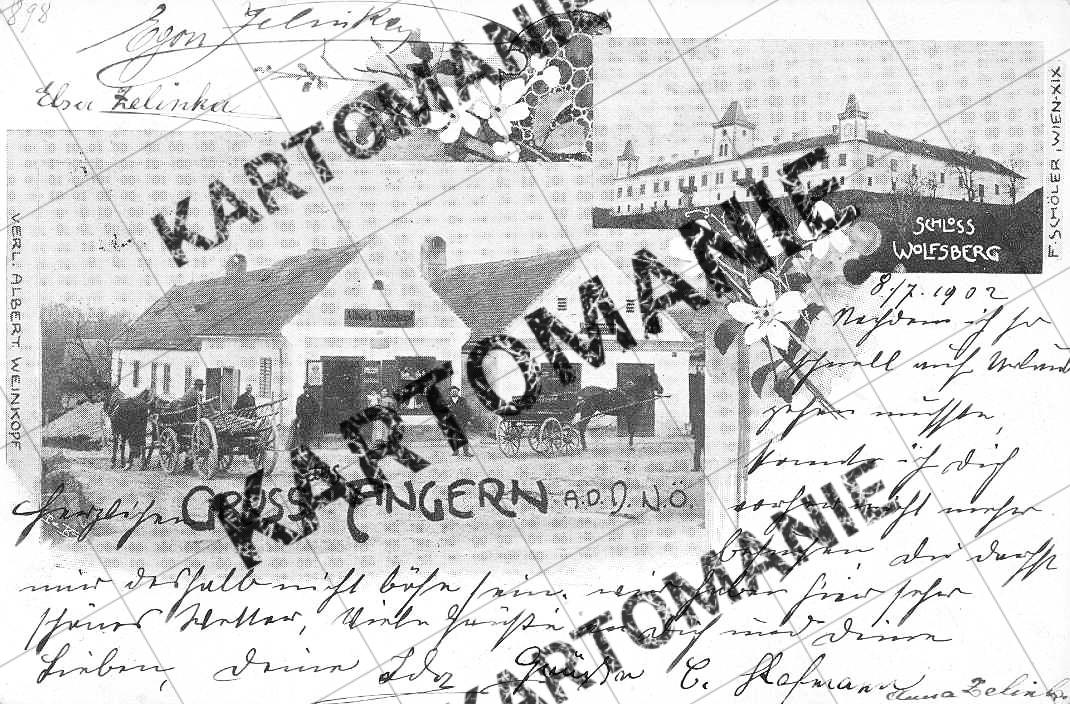 898
Egon Zelinka
Elsa Zelinka
KARTOMANIE
F. SCHÖLER, WIEN-XIX
SCHLOSS
WOLFSBERG
VERL: ALBERT WEINKOPF
KARTOMANIE
8./7. 1902
Nachdem ich so
schnell auf Urlaub
gehen musste,
konnte ich dich
Herzlichen GRUSS AUS ANGERN A.D.D. N.Ö.
vorher nicht mehr
besuchen, du darfst
mir deshalb nicht böse sein. wir haben hier sehr
schönes Wetter, Viele Grüsse an dich und deine
Lieben, deine Ida Grüße C. Hofmann
Anna Zelinka
KARTOMANIE